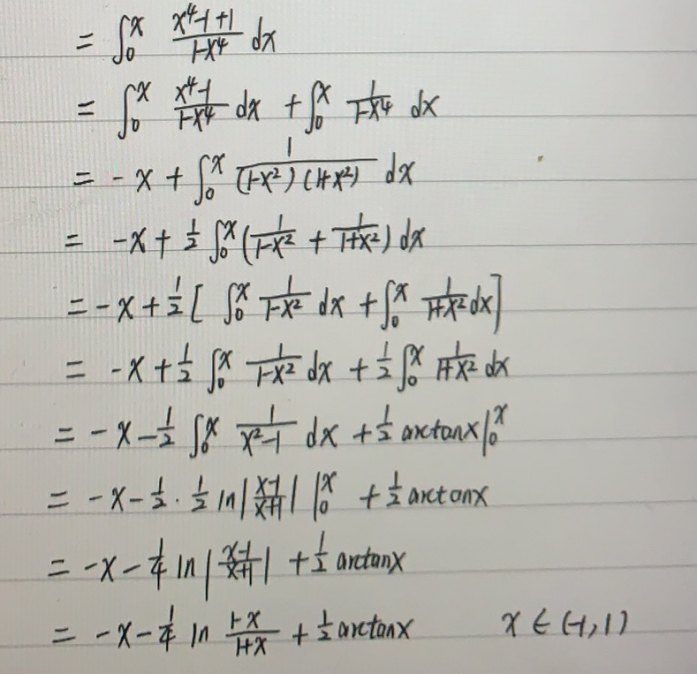 = ∫₀ˣ (x⁴-1+1)/(1-x⁴) dx
= ∫₀ˣ (x⁴-1)/(1-x⁴) dx + ∫₀ˣ 1/(1-x⁴) dx
= -x + ∫₀ˣ 1/((1-x²)(1+x²)) dx
= -x + 1/2 ∫₀ˣ (1/(1-x²) + 1/(1+x²)) dx
= -x + 1/2 [ ∫₀ˣ 1/(1-x²) dx + ∫₀ˣ 1/(1+x²) dx]
= -x + 1/2 ∫₀ˣ 1/(1-x²) dx + 1/2 ∫₀ˣ 1/(1+x²) dx
= -x - 1/2 ∫₀ˣ 1/(x²-1) dx + 1/2 arctanx|₀ˣ
= -x - 1/2 · 1/2 ln|(x-1)/(x+1)| |₀ˣ + 1/2 arctanx
= -x - 1/4 ln|(x-1)/(x+1)| + 1/2 arctanx
= -x - 1/4 ln (1-x)/(1+x) + 1/2 arctanx x ∈ (-1,1)